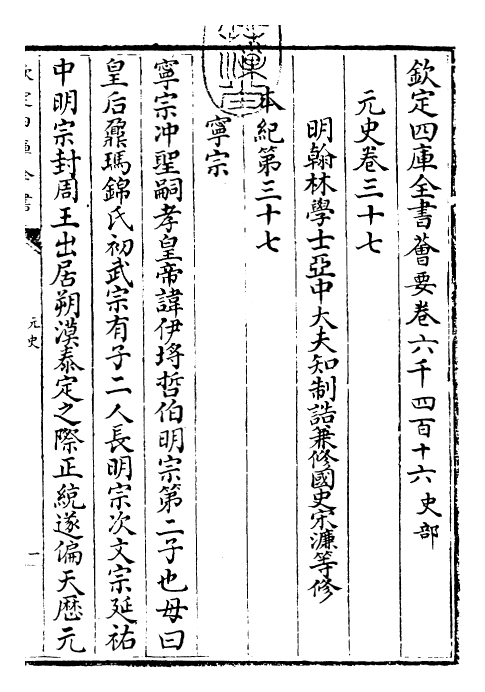 欽定四庫全書薈要卷六千四百十六 史部
元史卷三十七
明翰林學士亞中大夫知制誥兼修國史宋濂等修
本紀第三十七
寧宗
寧宗冲聖嗣孝皇帝諱伊埒哲伯明宗第二子也母曰
皇后鼐瑪錦氏初武宗有子二人長明宗次文宗延祐
中明宗封周王出居朔漠泰定之際正統遂偏天厯元
欽定四庫全書
元史
一